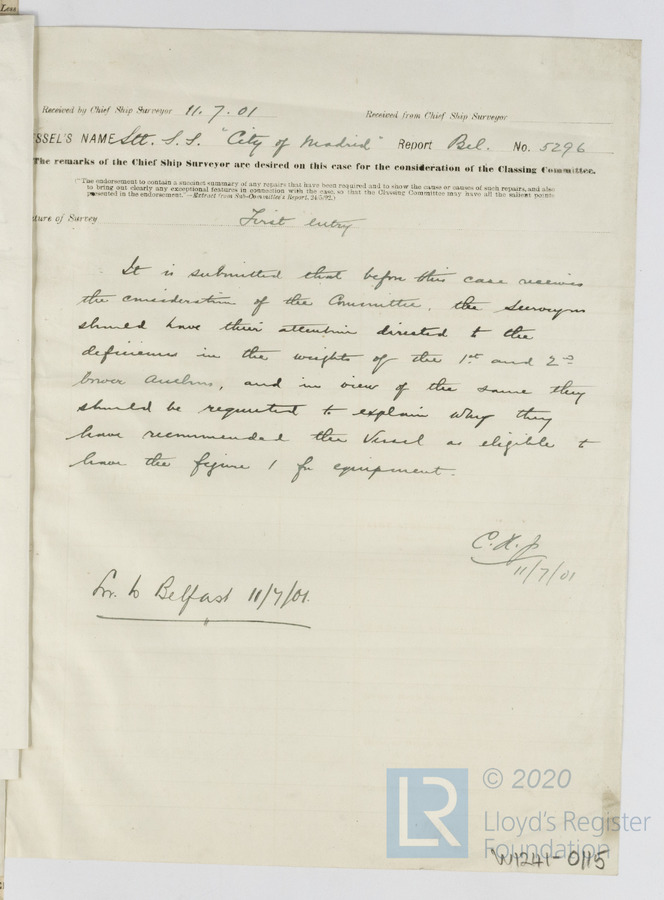 Less
Received by Chief Ship Surveyor 11.7.01 Received from Chief Ship Surveyor
SSEL'S NAME Stl. S.S. "City of Madrid" Report Bel. No. 5296
The remarks of the Chief Ship Surveyor are desired on this case for the consideration of the Classing Committee.
("The endorsement to contain a succinct summary of any repairs that have been required and to show the cause or causes of such repairs, and also
to bring out clearly any exceptional features in connection with the case, so that the Classing Committee may have all the salient points
presented in the endorsement."—Extract from Sub-Committee's Report, 24/5/92.)
ture of Survey First Entry
It is submitted that before this case receives
the consideration of the Committee, the Surveyors
should have their attention directed to the
deficiencies in the weights of the 1st and 2nd
bower anchors, and in view of the same they
should be requested to explain why they
have recommended this Vessel as eligible to
have the figure 1 for equipment.
11/7/01
to Belfast 11/7/01.
LR © 2020
Lloyd's Register
Foundation
W1241-0115